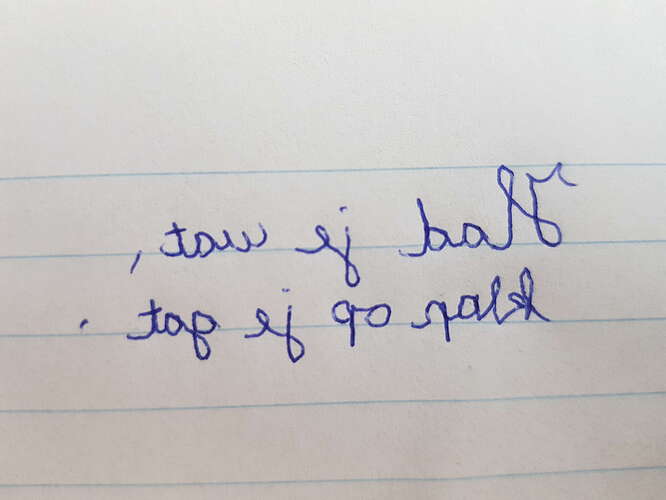 Had je wat,
klap op je gat.